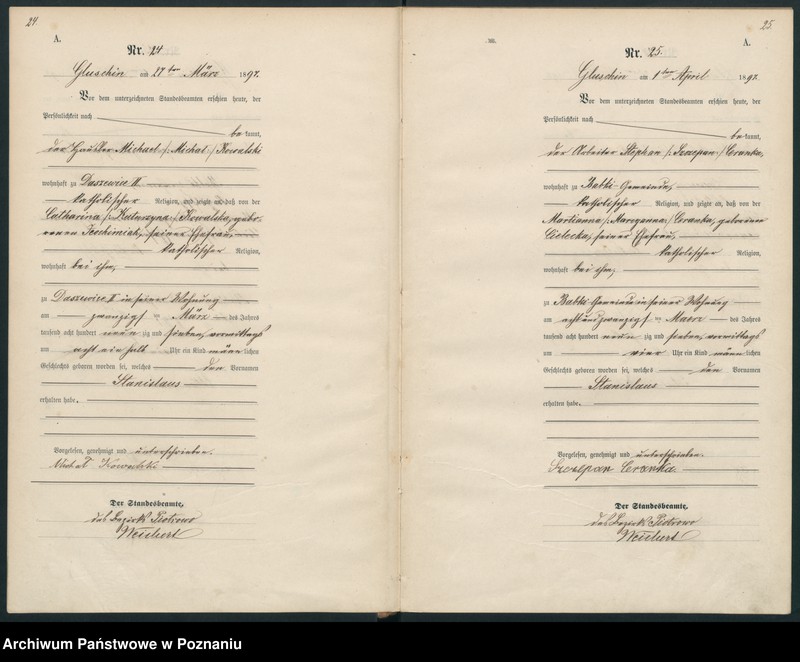 24.
A.
Nr. 24
Gluschin am 27ten März 1897.
Vor dem unterzeichneten Standesbeamten erschien heute, der
Persönlichkeit nach
bekannt,
der Häusler Michael /: Michal :/ Kowalski
wohnhaft zu Daszewice II
katholischer Religion, und zeigte an, daß von der
Catharina /: Katarzyna :/ Kowalska, gebo-
renen seiner Ehefrau
katholischer Religion,
wohnhaft bei ihm,
zu Daszewice II in seiner Wohnung
am zwanzigsten März des Jahres
tausend acht hundert neunzig und sieben, vormittags
um acht ein halb Uhr ein Kind männlichen
Geschlechts geboren worden sei, welches den Vornamen
Stanislaus
erhalten habe.
Vorgelesen, genehmigt und unterschrieben.
Michał Kowalski
Der Standesbeamte,
des Bezirks Piotrowo
Weichert
25.
A.
Nr. 25.
Gluschin am 1ten April 1897.
Vor dem unterzeichneten Standesbeamten erschien heute, der
Persönlichkeit nach
bekannt,
der Arbeiter Stephan /: Szczepan :/ Cranka,
wohnhaft zu Babki Gemeinde,
katholischer Religion, und zeigte an, daß von der
Marianna /: Maryanna :/ Cranka, geborenen
Cielecka, seiner Ehefrau,
katholischer Religion,
wohnhaft bei ihm,
zu Babki Gemeinde in seiner Wohnung
am achtundzwanzigsten Maerz des Jahres
tausend acht hundert neunzig und sieben, vormittags
um vier Uhr ein Kind männlichen
Geschlechts geboren worden sei, welches den Vornamen
Stanislaus
erhalten habe.
Vorgelesen, genehmigt und unterschrieben.
Szczepan Cranka
Der Standesbeamte,
des Bezirks Piotrowo
Weichert
Archiwum Państwowe w Poznaniu